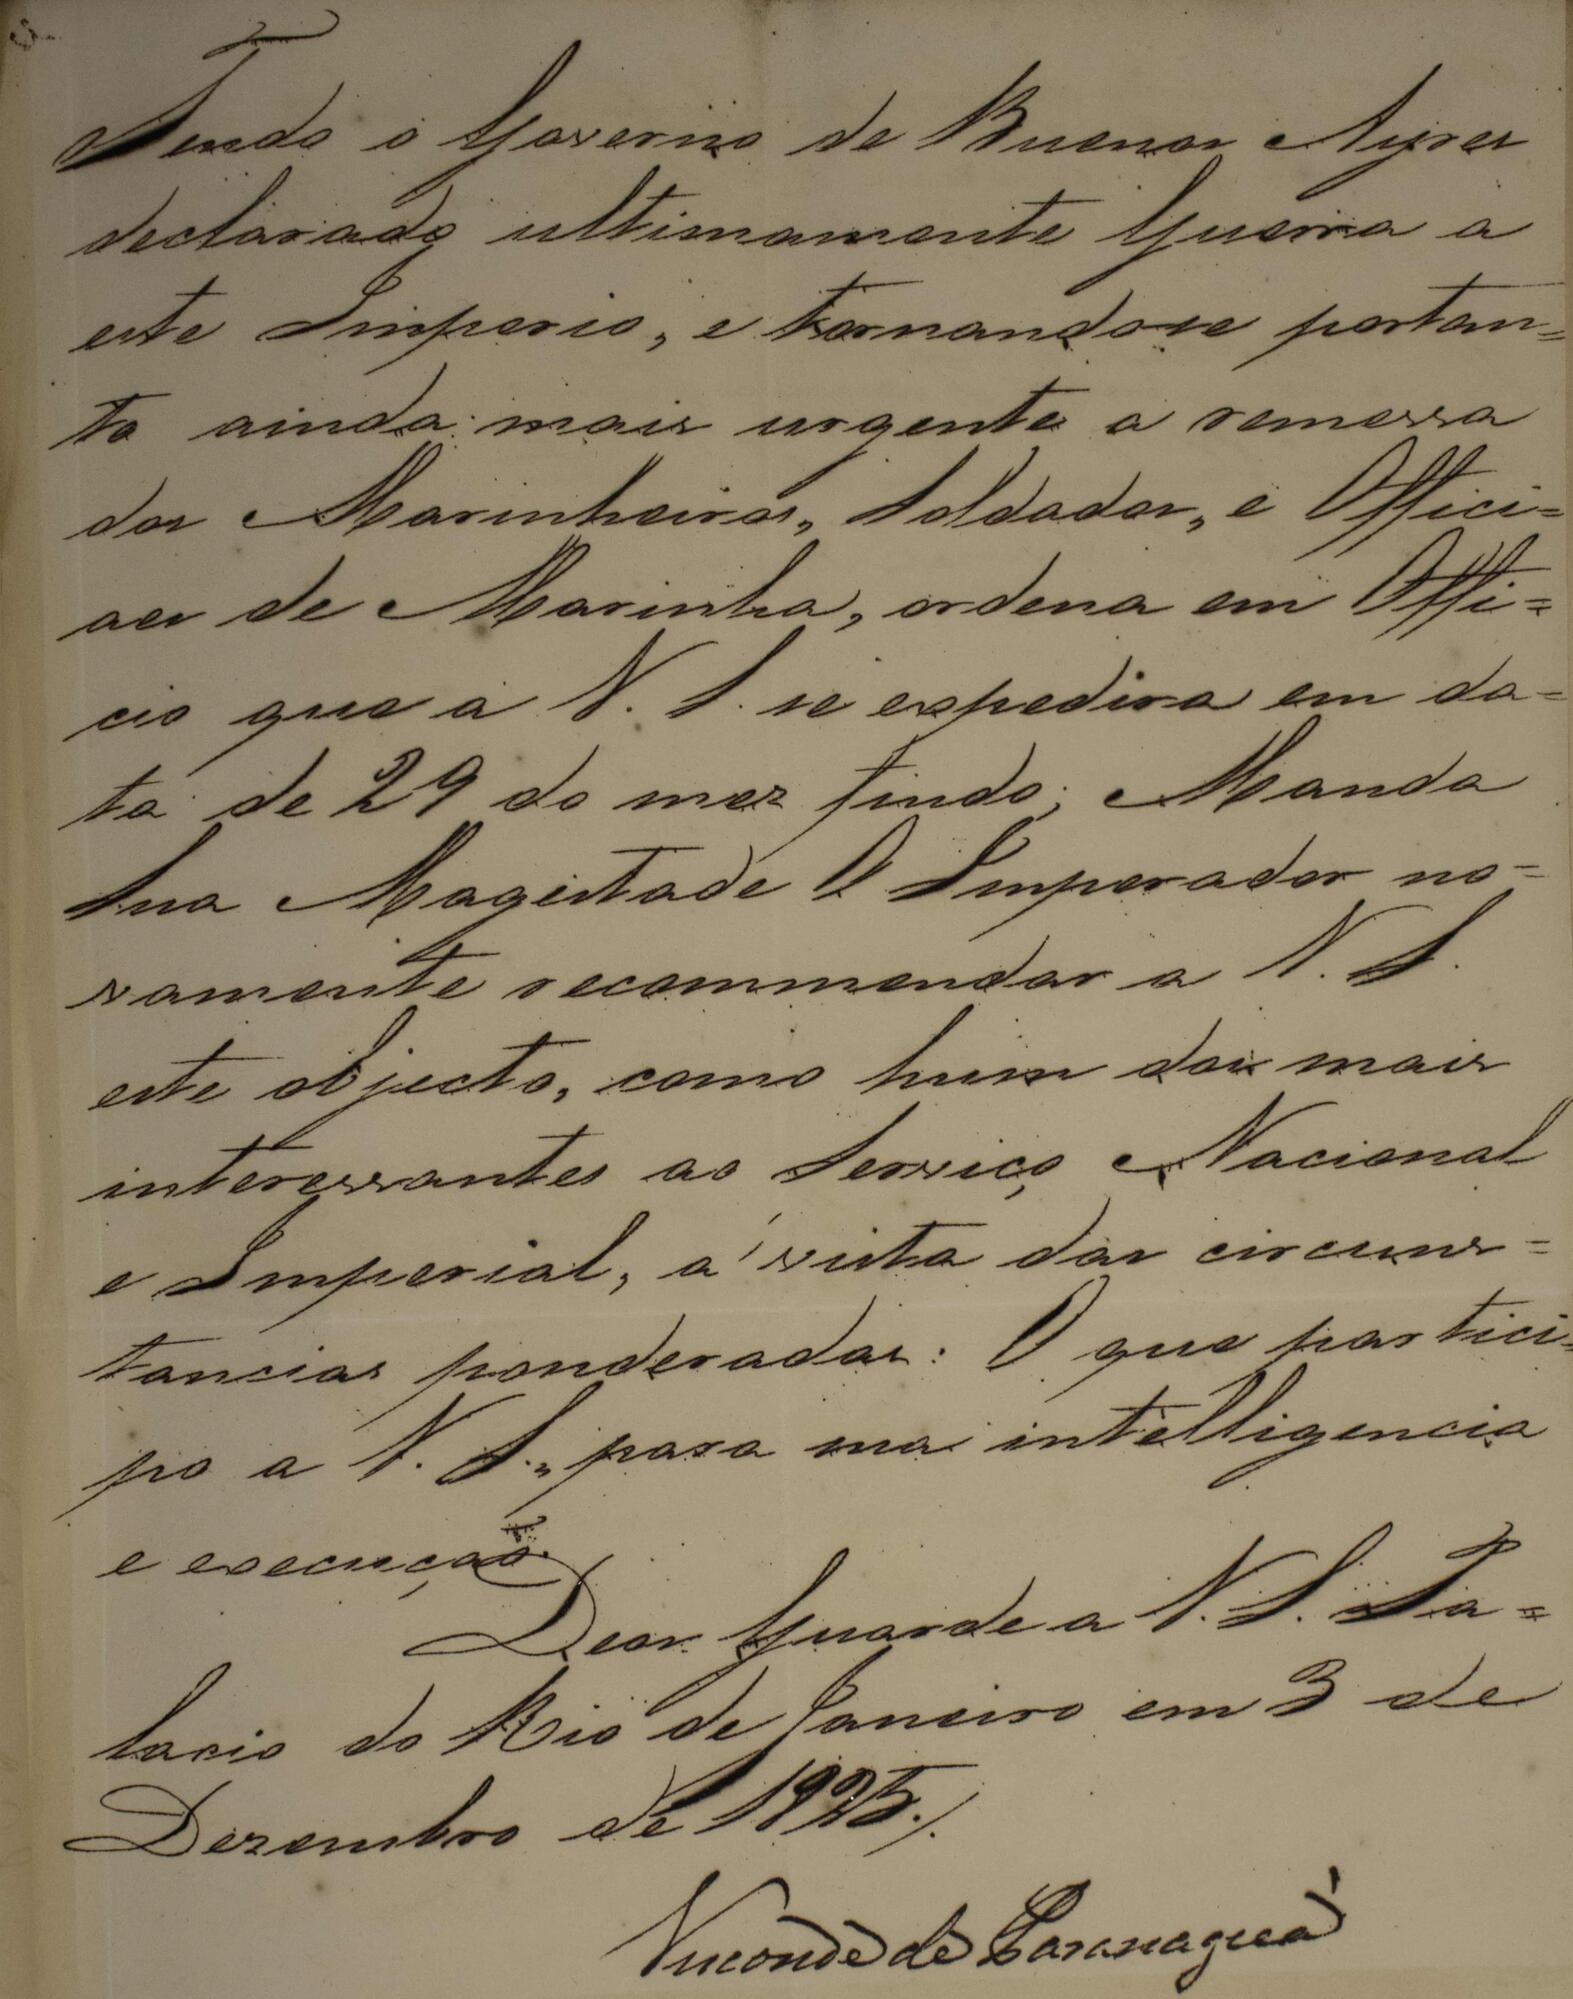 Tendo o Governo de Buenos Ayres
declarado ultimamente Guerra a
este Imperio, e tornando-se portan=
to ainda mais urgente a remessa
dos Marinheiros, Soldados, e Offici=
aes de Marinha, ordena em Offi=
cio que a V. S. se expedira em da=
ta de 29 do mez findo; Manda
Sua Magestade O Imperador no=
vamente recommendar a V. S.
este objecto, como hum dos mais
interessantes ao Serviço Nacional
e Imperial, á vista das circuns=
tancias ponderadas: O que partici=
po a V. S., para sua intelligencia
e execução.
Deos Guarde a V. S. Pa=
lacio do Rio de Janeiro em 3 de
Dezembro de 1825./.
Visconde de Paranaguá